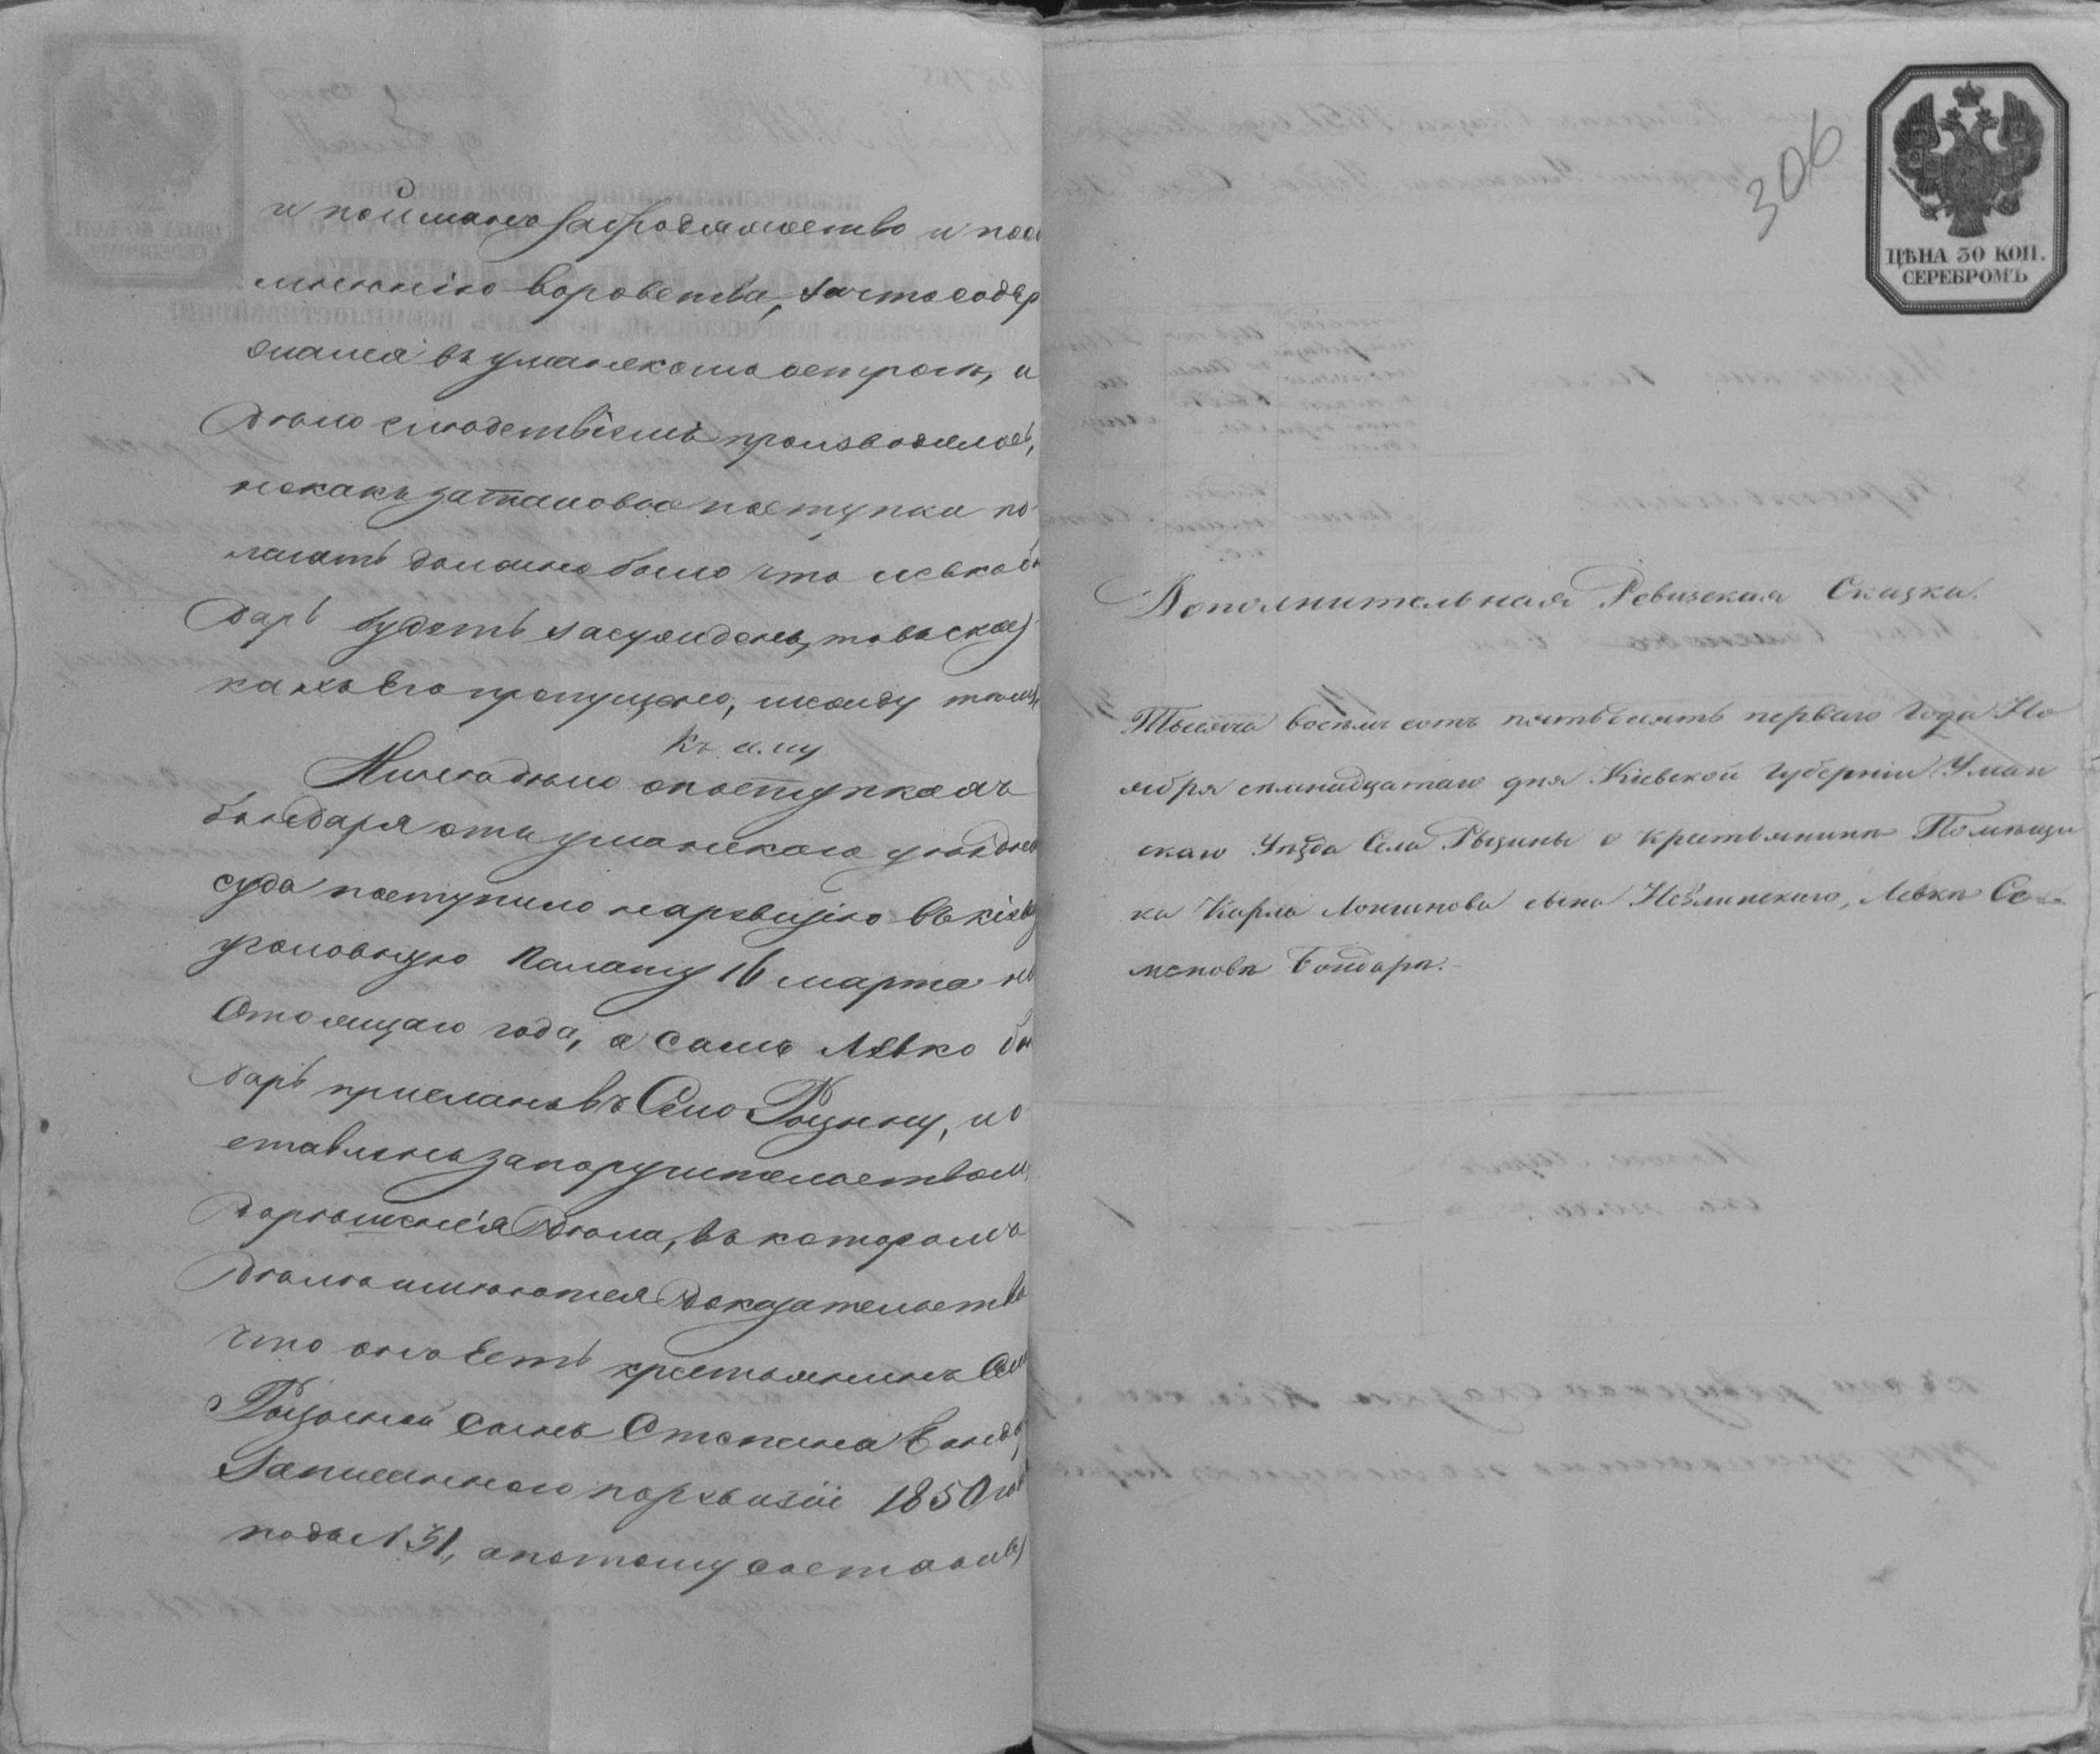 и пойманъ за бродяжество и подо
мненію воровства, за что содер
жался въ уманскомъ острогѣ, и
дѣло слѣдствіемъ производилось,
но какъ за таковые поступки по
лагать должно было что левко бон
дарь будетъ засужденъ, то въ сказ
кахъ Его пропущено, между тѣмъ
къ а.му
Ныне дѣло о поступкахъ
бондаря отъ уманскаго уѣзднаго
суда поступило на ревизію въ кіевс
уголовную Палату 16 марта на
стоящаго года, а самъ Левко бон
дарь присланъ въ Село Рыжину, и о
ставленъ за поручительствомъ
до рѣшенія дѣла, въ которомъ
дѣлѣ имѣются доказательства
что онъ Есть крестьянинъ Села
Рыжиной сынъ Степана Бонда
записанного по ревизіи 1850 год
подъ N 31, а потому составивъ
306
ЦѢНА 30 КОП.
СЕРЕБРОМЪ
Дополнительная Ревизская Сказка.
Тысяча восемь сотъ пятьдесятъ перваго Года Но
ября семнадцатаго дня Кіевской Губерніи Уман
скаго Уѣзда Села Рыжины о крестьянинѣ Помѣщи
ка Карла Лонгинова сына Левкѣ Се
меновѣ Бондарѣ.